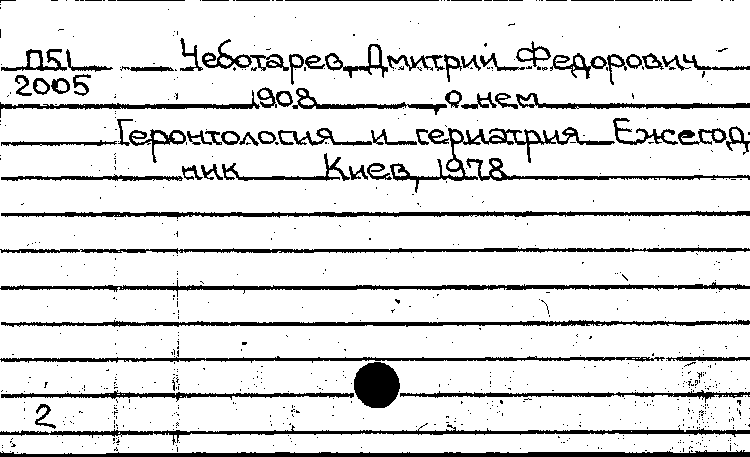 П51 Чеботарев, Дмитрий Федорович,
2005
1908 , о нем
Геронтология и гериатрия Ежегод-
ник Киев, 1978
2